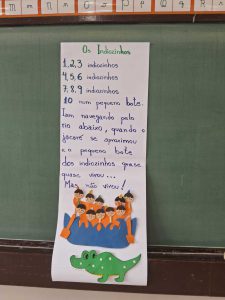 Os Indiozinhos
1, 2, 3 indiozinhos
4, 5, 6 indiozinhos
7, 8, 9 indiozinhos
10 num pequeno bote.
Iam navegando pelo
rio abaixo, quando o
jacaré se aproximou
e o pequeno bote
dos indiozinhos quase
quase virou...
Mas não virou!